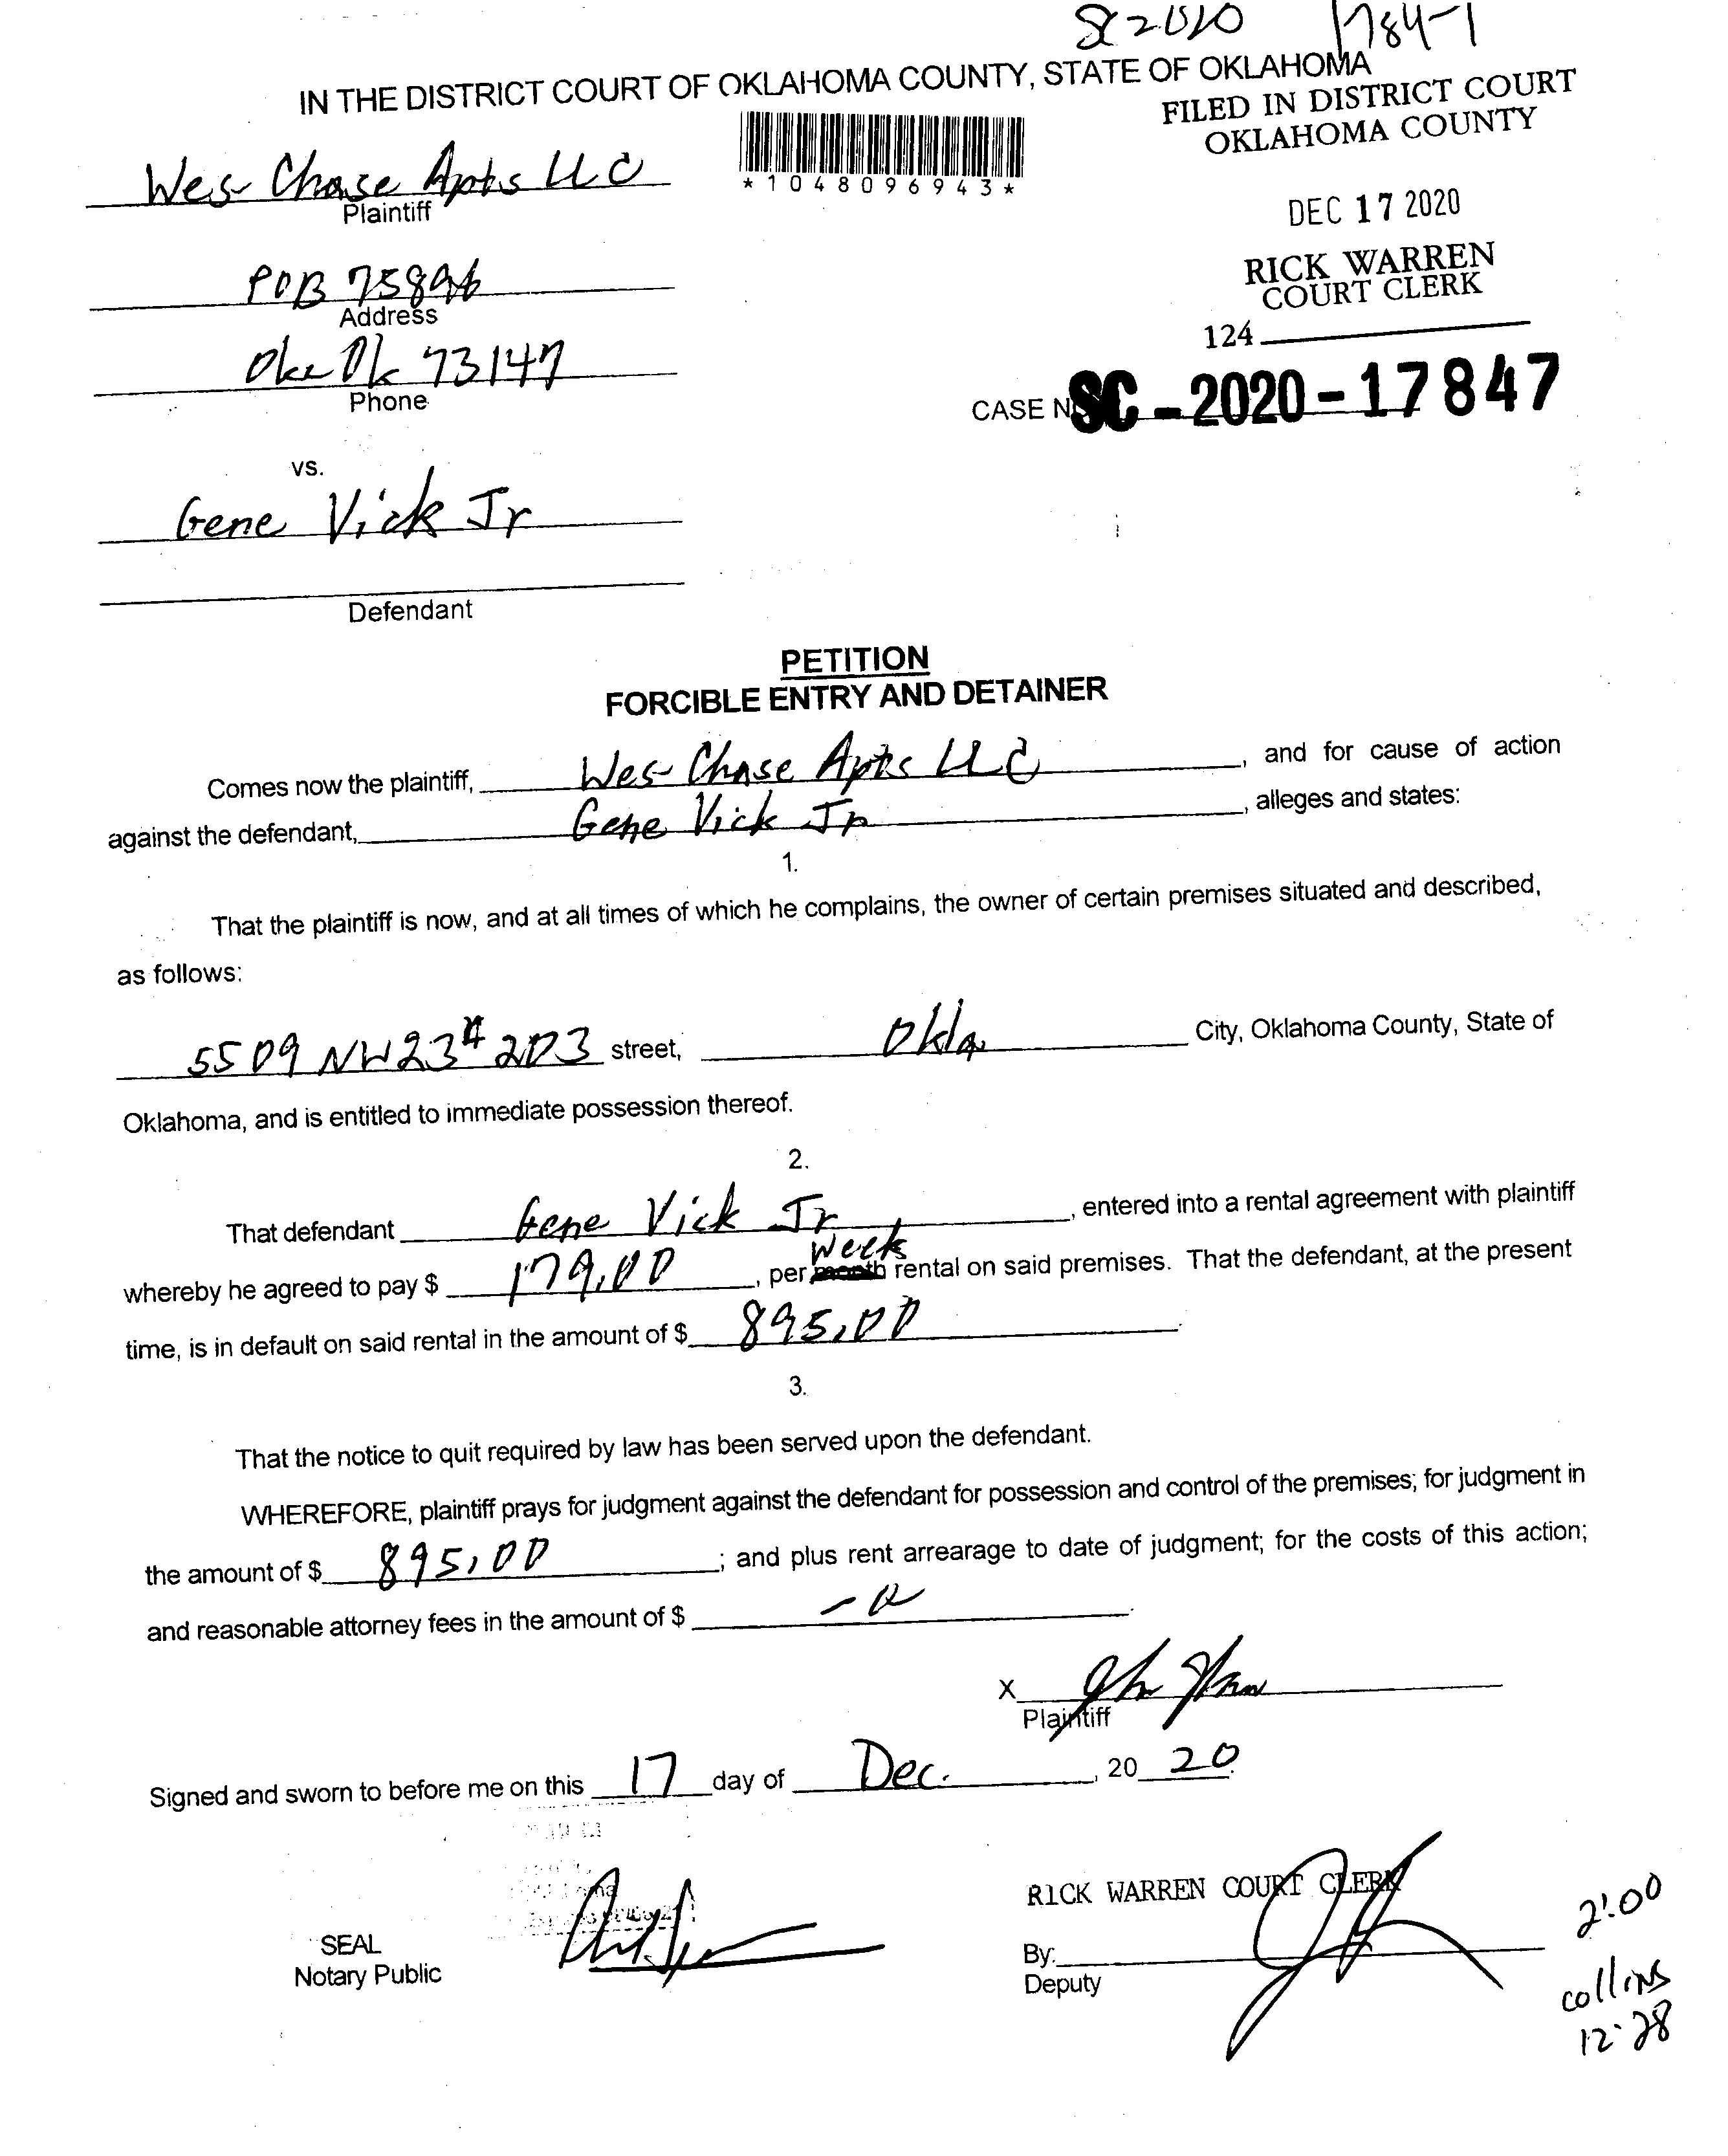 SC 2020 1784-7
IN THE DISTRICT COURT OF OKLAHOMA COUNTY, STATE OF OKLAHOMA
FILED IN DISTRICT COURT
OKLAHOMA COUNTY
*1048096943*
Wes Chase Apts LLC
Plaintiff
DEC 17 2020
RICK WARREN
COURT CLERK
POB 75896
Address
124
Ok 73147
Phone
CASE NO. SC-2020-17847
vs.
Gene Vick Jr
Defendant
PETITION
FORCIBLE ENTRY AND DETAINER
Comes now the plaintiff, Wes Chase Apts LLC, and for cause of action
against the defendant, Gene Vick Jr, alleges and states:
1.
That the plaintiff is now, and at all times of which he complains, the owner of certain premises situated and described,
as follows:
5509 NW 23rd 203 street, Okla City, Oklahoma County, State of
Oklahoma, and is entitled to immediate possession thereof.
2.
That defendant Gene Vick Jr, entered into a rental agreement with plaintiff
week
whereby he agreed to pay $ 179.00, per month rental on said premises. That the defendant, at the present
time, is in default on said rental in the amount of $ 895.00.
3.
That the notice to quit required by law has been served upon the defendant.
WHEREFORE, plaintiff prays for judgment against the defendant for possession and control of the premises; for judgment in
the amount of $ 895.00; and plus rent arrearage to date of judgment; for the costs of this action;
and reasonable attorney fees in the amount of $ -0.
X
Plaintiff
Signed and sworn to before me on this 17 day of Dec., 20 20.
RICK WARREN COURT CLERK
SEAL
Notary Public
By:
Deputy
2:00
collins
12-28